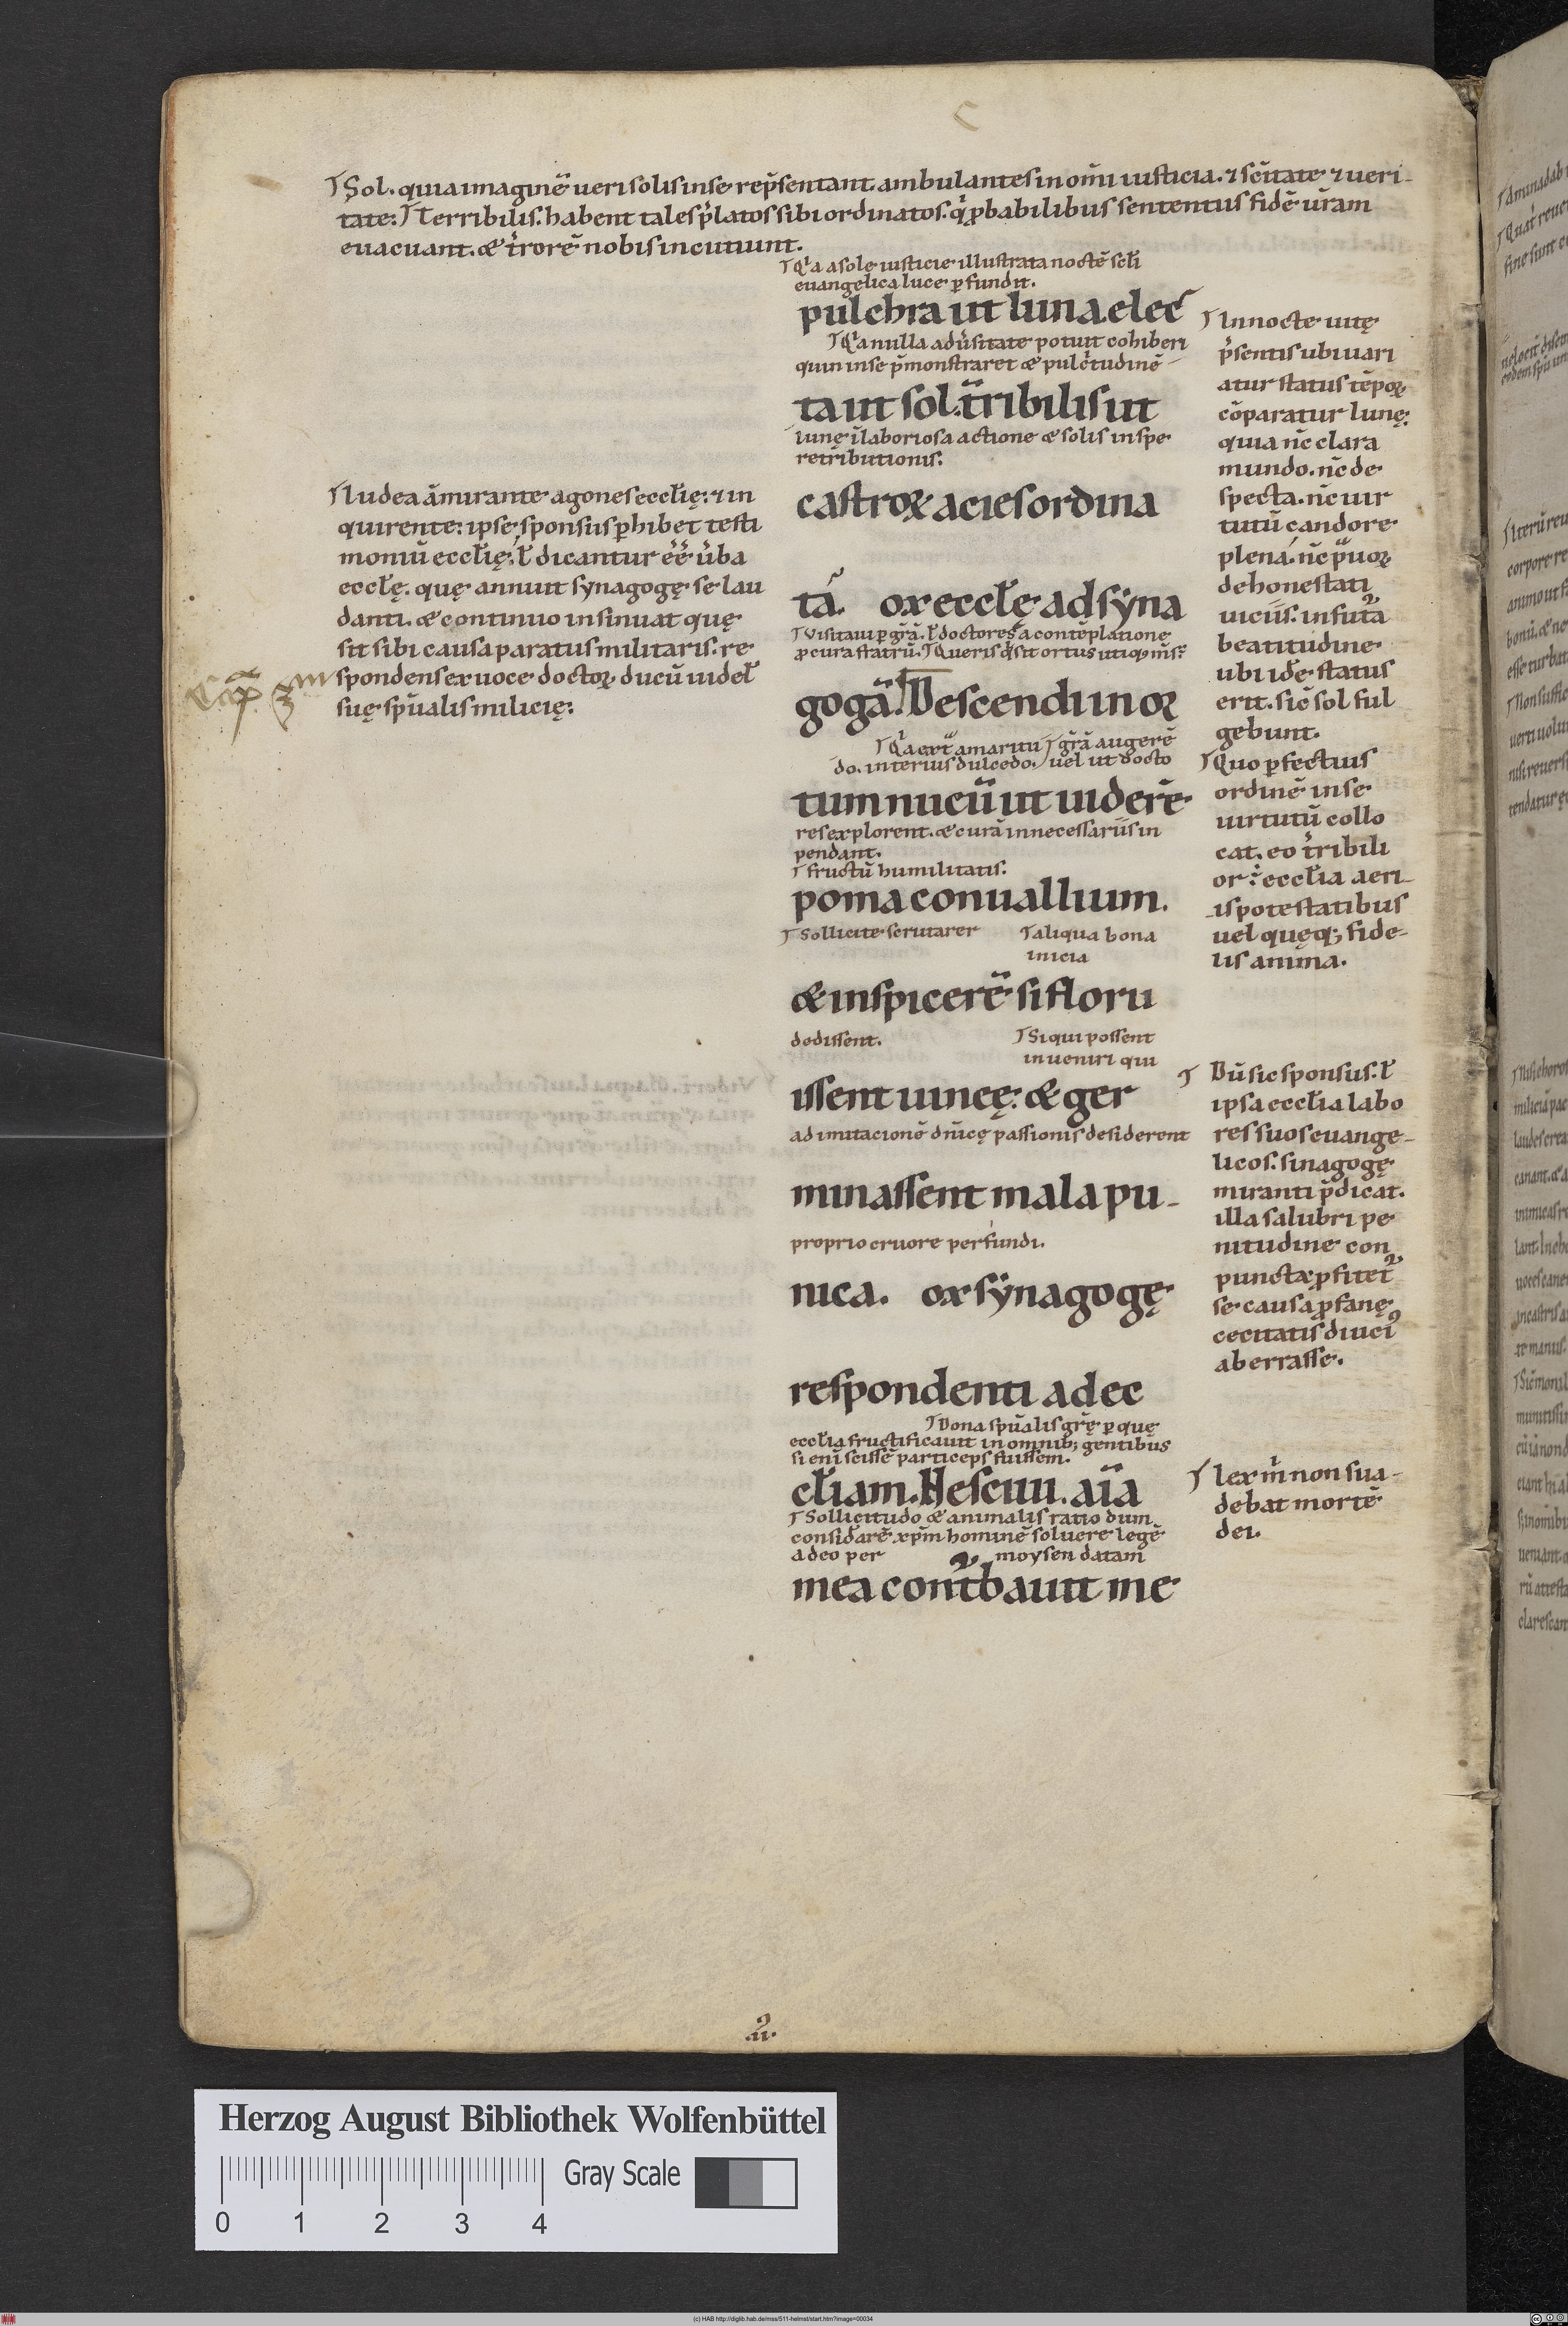 Sol. quia imaginē ueri solis in se rep̄sentant. ambulantes in om̄i iusticia. ⁊ sc̄itate ⁊ ueri-
tate: Terribilis. habent tales p̄latos sibi ordinatos. q̇ ꝓbabilibus sententiis fidē ur̄am
euacuant. & t̄rorē nobis incutiunt.
Iudea am̄irante agones eccłię: ⁊ in
quirente: ipse sponsus ꝑhibet testi
moniū eccłię; ł dicantur ēē ūba
eccłę. quę annuit synagogę se lau
danti. & continuo insinuat quę
sit sibi causa paratus militaris. re
spondens ex uoce doctoꝝ ducū uideł
suę sp̄ualis milicię:
Cap
Q̇a a sole iusticie illustrata noctē scłi
euangelica luce ꝑfundit.
pulchra ut luna. elec
Q̇a nulla adūsitate potuit cohiberi
quin in se p̄monstraret & pulc̄tudinē
ta ut sol. t̄ribilis ut
lunę ī laboriosa actione & solis in spe
retributionis.
castroꝝ acies ordina
ta. ox eccłę ad syna
Visitaui ꝑ gr̄a. ł doctores a contēplatione
ꝓcura statrū. Queris q̇ sit ortus utiqꝫ m̄s.
gogā. Descendi in oꝝ
Q̇a ext̄ amaritu gr̄a augerē
do. interius dulcedo. uel ut docto
tum nucū ut uiderē
res explorent. & curā in necessariis in
pendant.
fructū humilitatis.
poma conuallium.
Sollicite scrutarer aliqua bona
inicia
& inspicerē si floru
dedissent. Si qui possent
inueniri qui
issent uineę: & ger
ad imitacionē dn̄icę passionis desiderent
minassent mala pu-
proprio cruore perfundi.
nica. ox synagogę
respondenti ad ec
Dona sp̄ualis gr̄ę ꝑ quę
eccłia fructificauit in omnibꝫ gentibus
si eni scissē particeps fuissem.
cłiam. Nesciui. aīa
Sollicitudo & animalis ratio dum
considarē xp̄m hominē soluere legē
a deo per moysen datam
mea cont̄bauit me
In nocte uitę
p̄sentis ubi uari
atur status tēpoꝝ
cōparatur lunę:
quia nc̄ clara
mundo. nc̄ de
specta. nc̄ uir
tutū candore
plena. nc̄ p̄uoꝝ
dehonestati
uiciis. in futa
beatitudine
ubi idē status
erit. sic̄ sol ful
gebunt.
Quo ꝑfectius
ordinē in se
uirtutū collo
cat. eo t̄ribili
or: eccłia aeri-
is potestatibus
uel quęqꝫ fide-
lis anima.
Dū sic sponsus. ł
ipsa eccłia labo
res suos euange-
licos. sinagogę
miranti p̄dicat.
illa salubri pe
nitudine con
puncta ꝓfitet
se causa ꝓfanę
cecitatis diuci
aberrasse.
lex m̄ non sua-
debat mortē
dei.
Herzog August Bibliothek Wolfenbüttel
Gray Scale
0 1 2 3 4
(c) HAB http://diglib.hab.de/mss/511-helmst/start.htm?image=00034